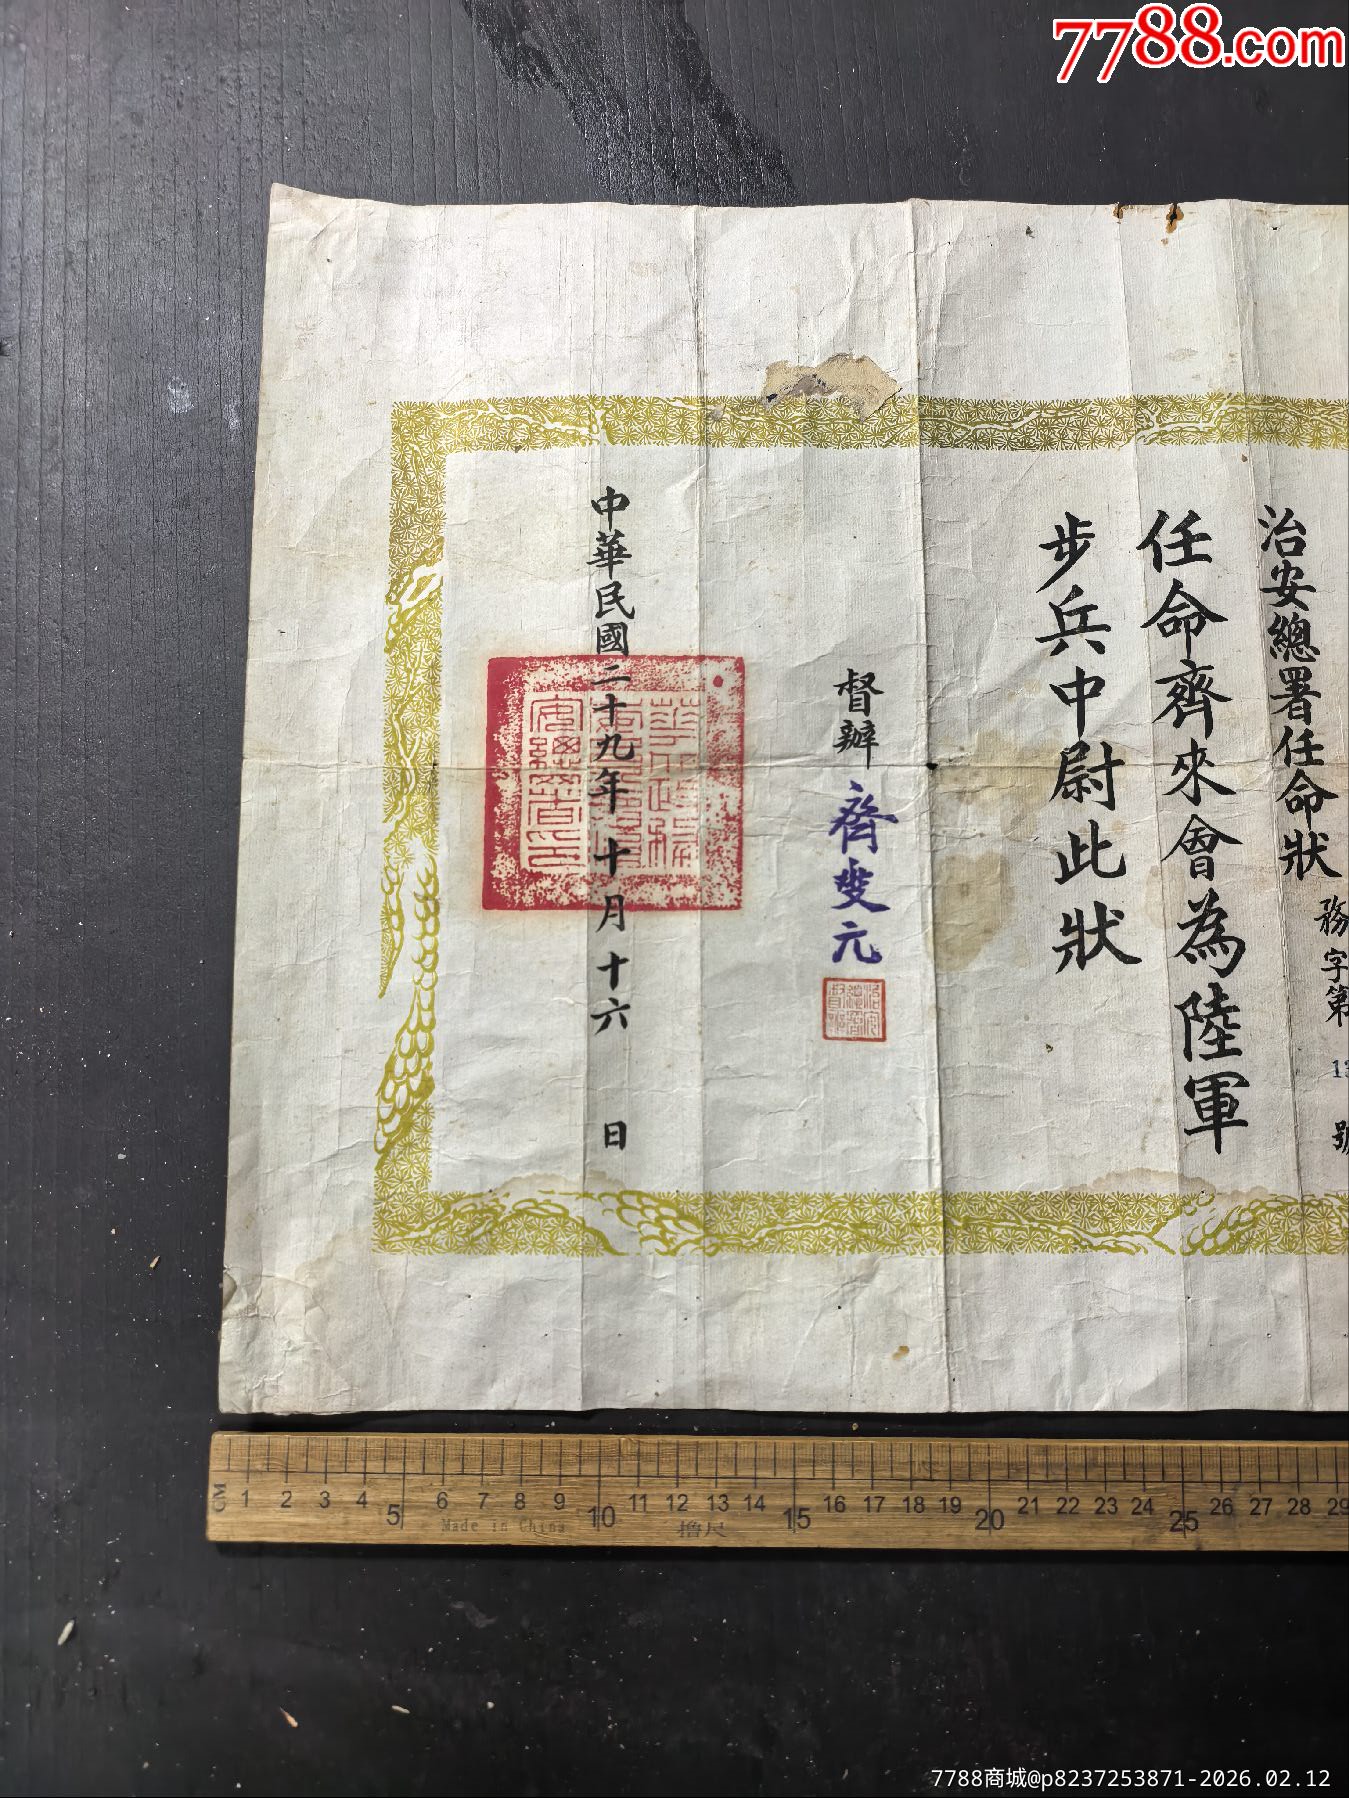 7788.com
治安總署任命狀
務字第
號
任命齊來會為陸軍
步兵中尉此狀
督辦 齊燮元
治安總署督辦
中華民國二十九年十月十六日
CM 1 2 3 4 5 6 7 8 9 10 11 12 13 14 15 16 17 18 19 20 21 22 23 24 25 26 27 28 29
Made in China
7788商城@p8237253871-2026.02.12